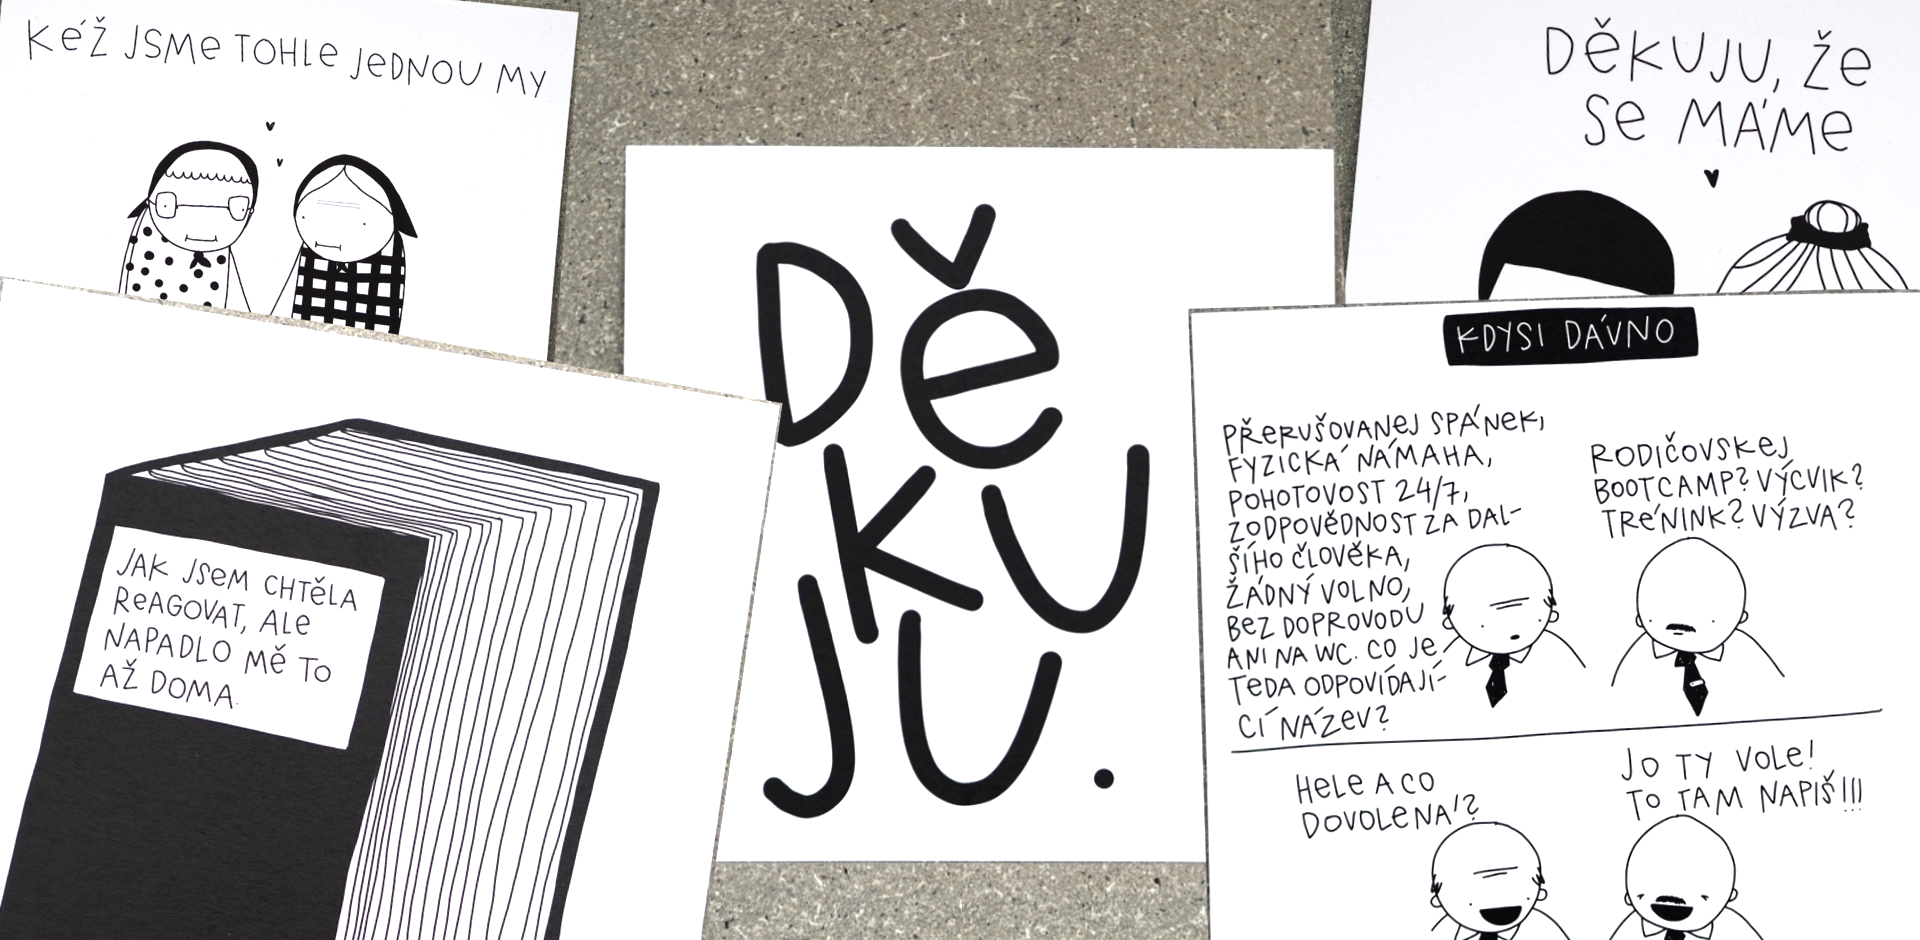 KÉŽ JSME TOHLE JEDNOU MY
DĚKUJU, ŽE
SE MÁME
DĚ
KU
JU.
JAK JSEM CHTĚLA
REAGOVAT, ALE
NAPADLO MĚ TO
AŽ DOMA.
KDYSI DÁVNO
PŘERUŠOVANEJ SPÁNEK,
FYZICKÁ NÁMAHA,
POHOTOVOST 24/7,
ZODPOVĚDNOST ZA DAL-
ŠÍHO ČLOVĚKA,
ŽÁDNÝ VOLNO,
BEZ DOPROVODU
ANI NA WC. CO JE
TEDA ODPOVÍDAJÍ-
CÍ NÁZEV?
RODIČOVSKEJ
BOOTCAMP? VÝCVIK?
TRÉNINK? VÝZVA?
HELE A CO
DOVOLENÁ?
JO TY VOLE!
TO TAM NAPIŠ!!!